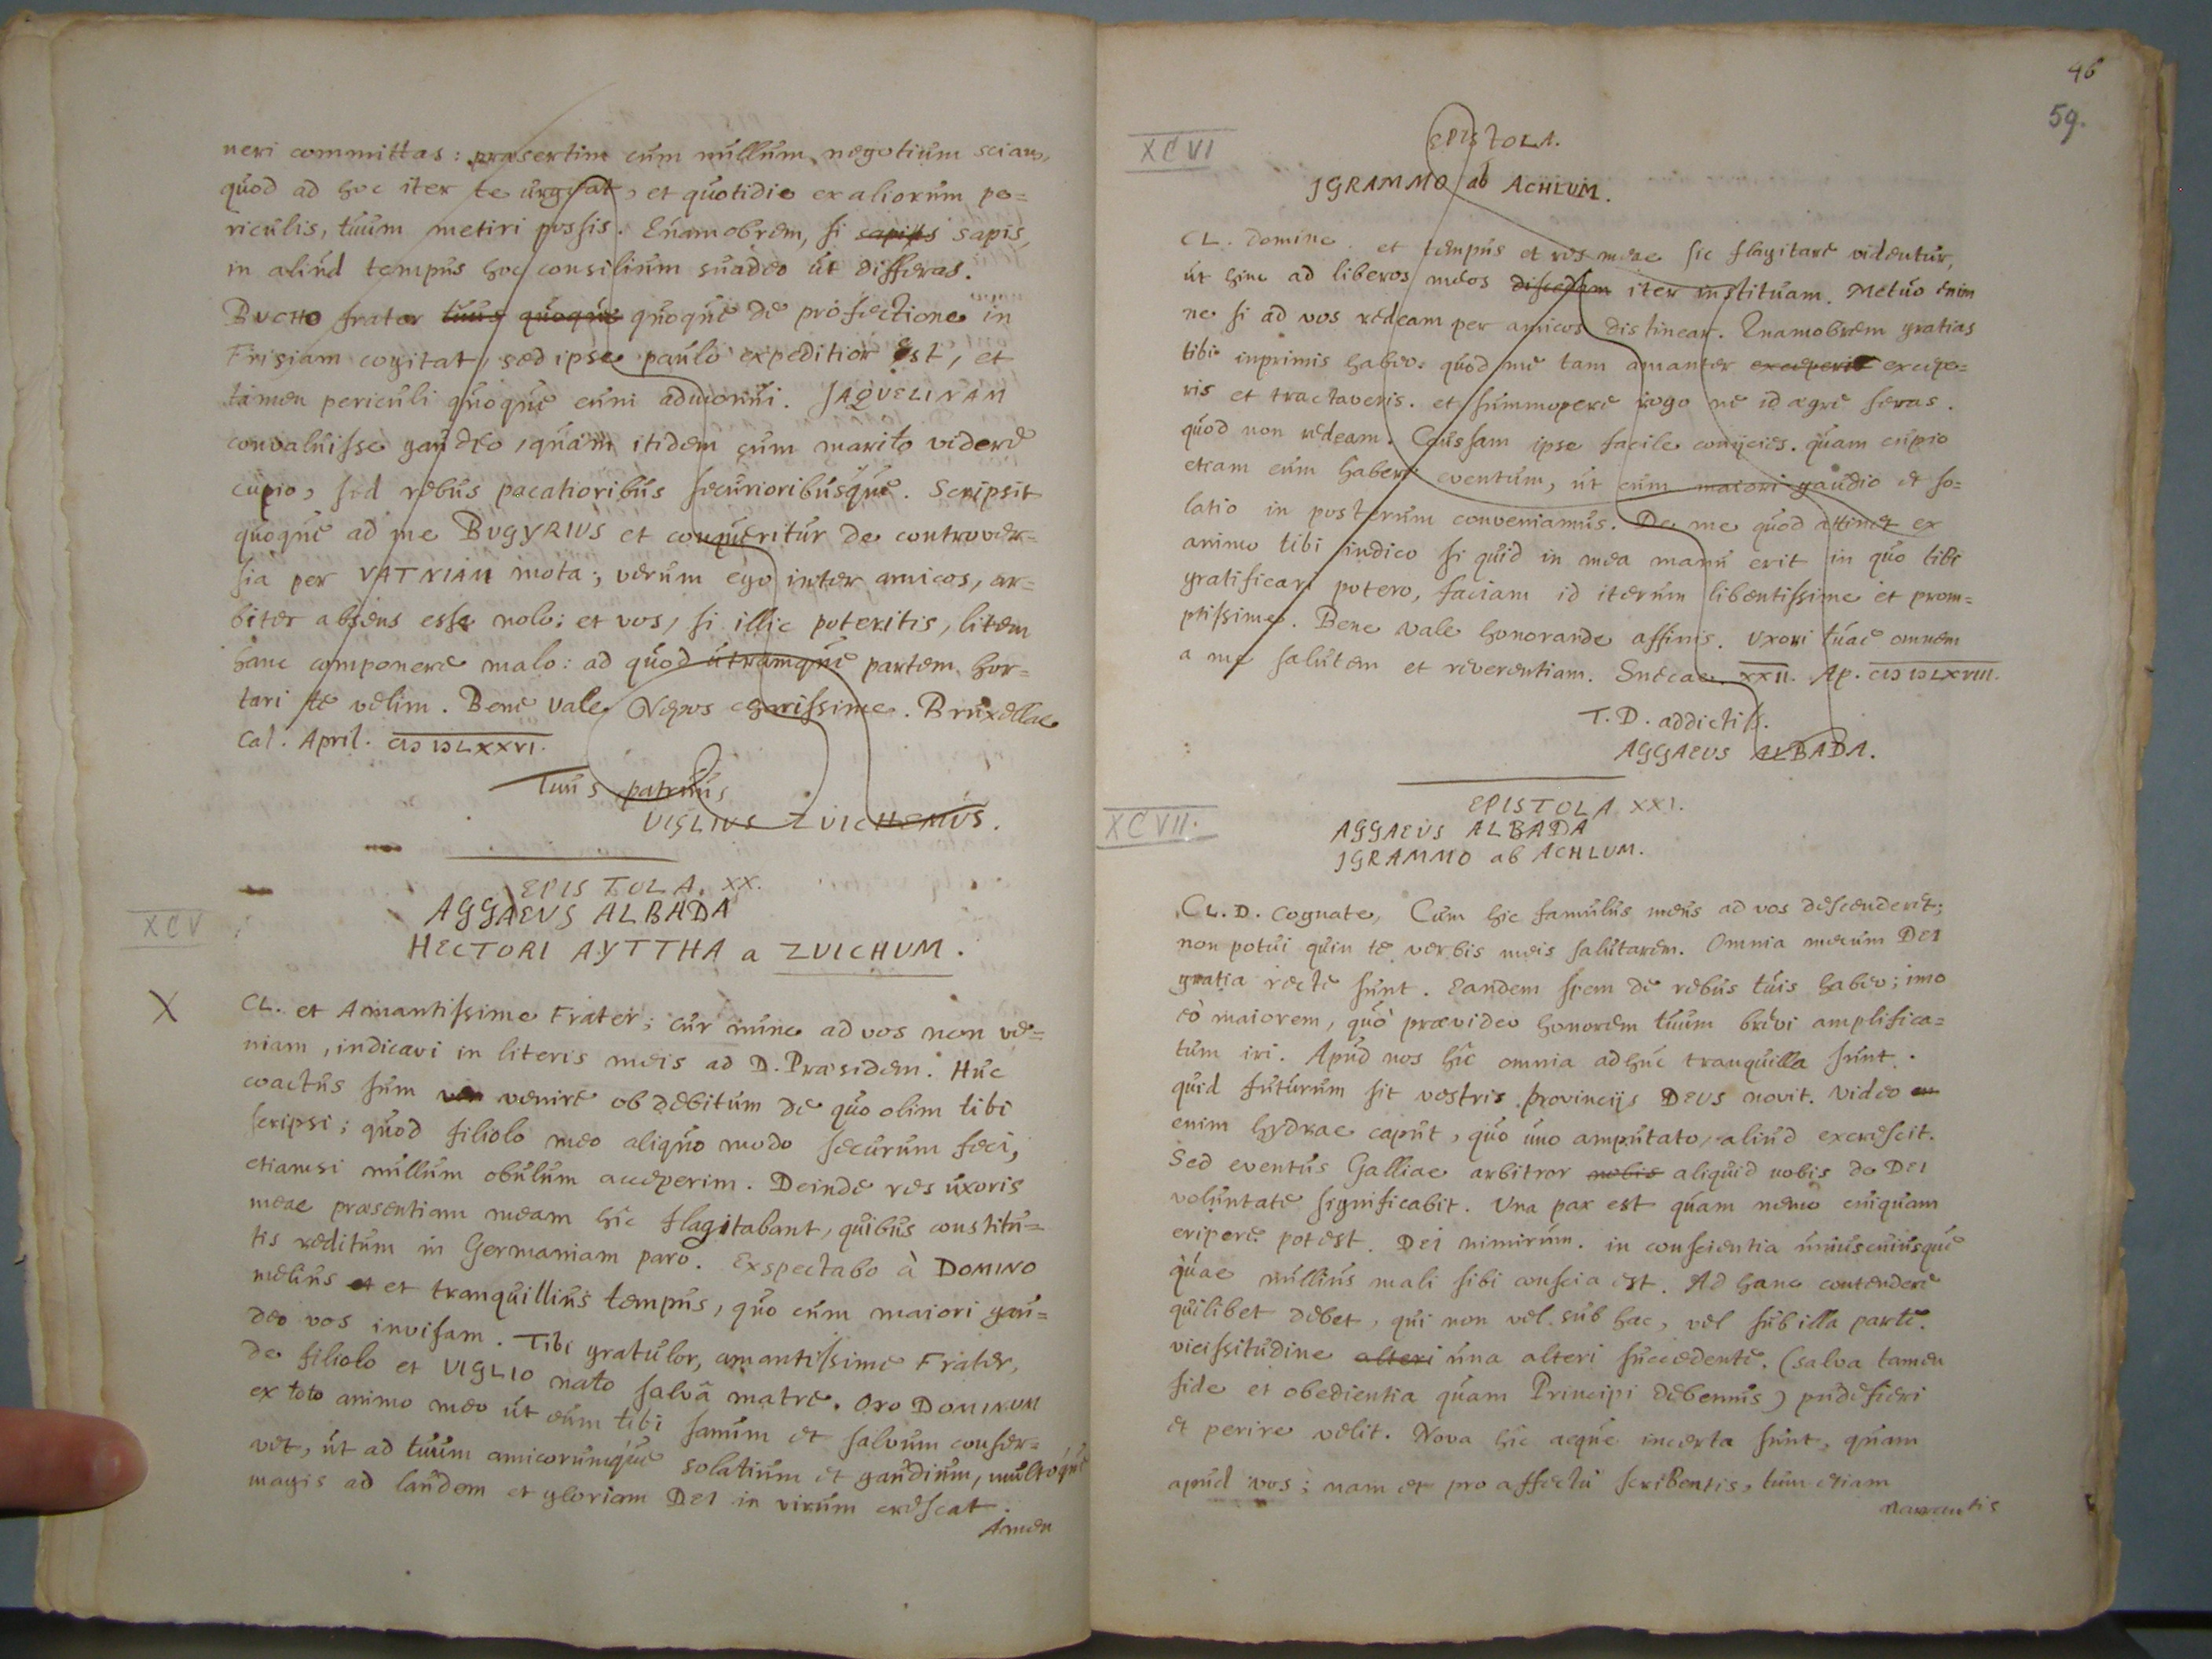 neri committas: præsertim cum nullum negotium sciam,
quod ad hoc iter te urgeat, et quotidie ex aliorum pe=
riculis, tuum metiri possis. Quamobrem, si sapis,
in aliud tempus hoc consilium suadeo ut differas.
BUCHO frater tuus quoque quoque de profectione in
Frisiam cogitat, sed ipse paulo expeditior est, et
tamen periculi quoque eum admonui. JAQUELINAM
convaluisse gaudeo, quam itidem cum marito videre
cupio, sed rebus pacatioribus securioribusque. Scripsit
quoque ad me BUGYRIUS et conqueritur de controver=
sia per VATNIAM mota; verum ego inter amicos, ar=
biter absens esse nolo; et vos, si illic poteritis, litem
hanc componere malo: ad quod utramque partem hor=
tari te velim. Bene vale Nepos charissime. Bruxellae
Cal. April. CIƆ IƆLXXVI.
Tuus patruus
VIGLIUS ZUICHEMUS.
EPISTOLA. XX.
AGGAEUS ALBADA
HECTORI AYTTHA a ZUICHUM.
XCV
X
CL. et Amantissime Frater; cur nunc ad vos non ve=
niam, indicavi in literis meis ad D. Præsidem. Huc
coactus sum venire ob debitum de quo olim tibi
scripsi; quod filiolo meo aliquo modo securum feci,
etiamsi nullum obulum acceperim. Deinde res uxoris
meae præsentiam meam hîc flagitabant, quibus constitu=
tis reditum in Germaniam paro. Exspectabo à DOMINO
melius et et tranquillius tempus, quo cum maiori gau=
deo vos invisam. Tibi gratulor, amantissime Frater,
de filiolo et VIGLIO nato salvâ matre. Oro DOMINUM
ex toto animo meo ut eum tibi sanum et salvum conser=
vet, ut ad tuum amicorumque solatium et gaudium, multoque
magis ad laudem et gloriam DEI in virum crescat.
Amen
46
59.
XCVI
EPISTOLA.
JGRAMMO ab ACHLUM.
CL. Domine. et tempus et res meae sic flagitare videntur,
ut hinc ad liberos meos discedam iter instituam. Metuo enim
ne si ad vos redeam per amicos distinear. Quamobrem gratias
tibi inprimis habeo. quod me tam amanter exceperis excepe=
ris et tractaveris. et summopere rogo ne id ægre feras.
quod non redeam. Caussam ipse facile conijcies. quam cupio
etiam eum habere eventum, ut cum maiori gaudio et so=
latio in posterum conveniamus. De me quod attinet ex
animo tibi indico si quid in mea manu erit in quo tibi
gratificari potero, faciam id iterum libentissime et prom=
ptissime. Bene vale honorande affinis. Uxori tuae omnem
a me salutem et reverentiam. Snecae. XXII. Ap. CIƆ IƆLXVIII.
T. D. addictiss.
AGGAEUS ALBADA.
XCVII.
EPISTOLA XXI.
AGGAEUS ALBADA
JGRAMMO ab ACHLUM.
CL. D. Cognate, Cum hic famulus meus ad vos descenderet;
non potui quin te verbis meis salutarem. Omnia mecum DEI
gratia recte sunt. Eandem spem de rebus tuis habeo; imo
eò maiorem, quò prævideo honorem tuum brevi amplifica=
tum iri. Apud nos hîc omnia adhuc tranquilla sunt.
quid futurum sit vestris provincijs DEUS novit. Video en
enim hydrae caput, quo uno amputato, aliud excrescit.
Sed eventus Galliae arbitror nobis aliquid nobis de DEI
voluntate significabit. Una pax est quam nemo cuiquam
eripere potest. DEI nimirum. in conscientia uniuscuiusque
quae nullius mali sibi conscia est. Ad hanc contendere
quilibet debet, qui non vel sub hac, vel sub illa parte.
vicissitudine alteri una alteri succedente. (salva tamen
fide et obedientia quam Principi debemus) pudefieri
et perire velit. Nova hîc aeque incerta sunt, quam
apud vos; nam et pro affectu scribentis, tum etiam
narrantis